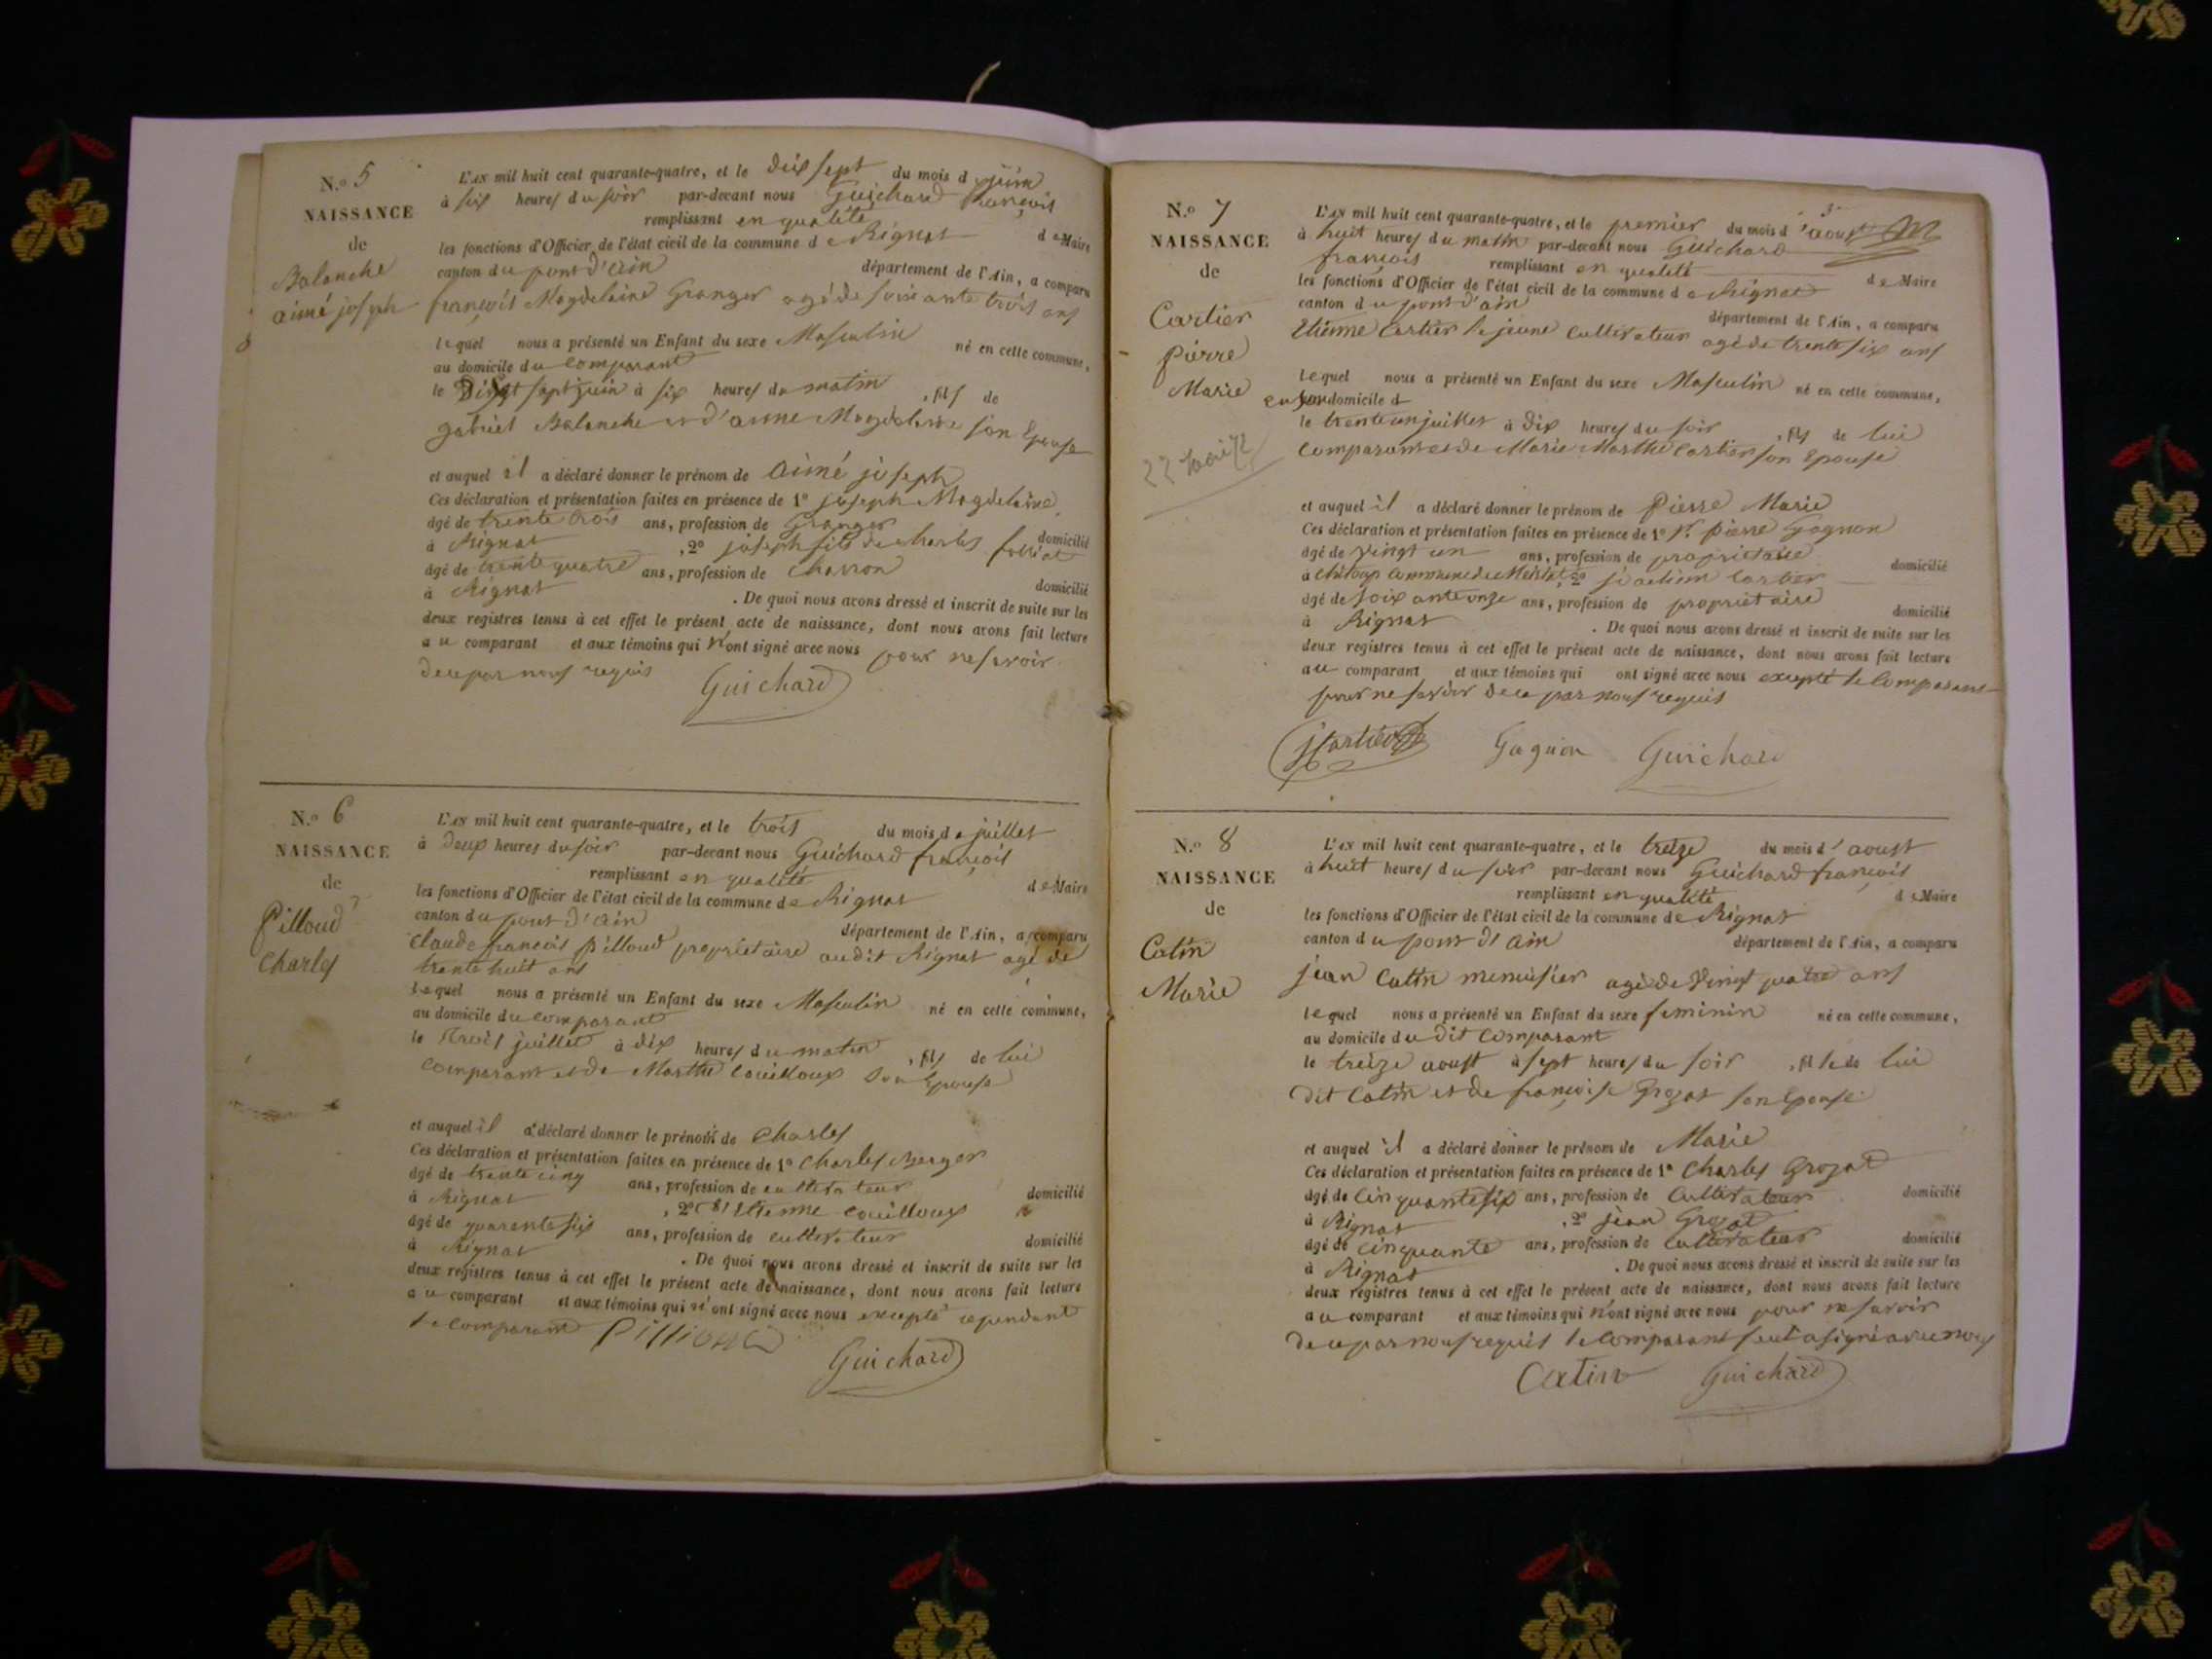 N.o 5
NAISSANCE
de
Balanche
aimé joseph
L'AN mil huit cent quarante-quatre, et le dix sept du mois de juin
à six heures du soir par-devant nous Guichard françois
remplissant en qualité de Maire
les fonctions d'Officier de l'état civil de la commune de Rignat
canton du pont d'ain département de l'Ain, a comparu
françois Magdelaine Granger agé de soixante trois ans
lequel nous a présenté un Enfant du sexe Masculin né en cette commune,
au domicile du comparant
le dixsept juin à six heures du matin, fils de
gabriel Balanche et d'anne Magdelaine son Epouse
et auquel il a déclaré donner le prénom de aimé joseph
Ces déclaration et présentation faites en présence de 1o joseph Magdelaine
âgé de trente trois ans, profession de Granger domicilié
à Rignat, 2o joseph fils de charles
âgé de trente quatre ans, profession de charron domicilié
à Rignat. De quoi nous avons dressé et inscrit de suite sur les
deux registres tenus à cet effet le présent acte de naissance, dont nous avons fait lecture
au comparant et aux témoins qui n'ont signé avec nous pour ne savoir
de ce par nous requis
Guichard
N.o 6
NAISSANCE
de
Pilloud
Charles
L'AN mil huit cent quarante-quatre, et le trois du mois de juillet
à deux heures du soir par-devant nous Guichard françois
remplissant en qualité de Maire
les fonctions d'Officier de l'état civil de la commune de Rignat
canton du pont d'ain département de l'Ain, a comparu
Claude françois pilloud propriétaire audit Rignat agé de
trente huit ans
lequel nous a présenté un Enfant du sexe Masculin né en cette commune,
au domicile du comparant
le trois juillet à dix heures du matin, fils de lui
comparant et de Marthe Couilloux son Epouse
et auquel il a déclaré donner le prénom de Charles
Ces déclaration et présentation faites en présence de 1o Charles Berger
âgé de trente cinq ans, profession de cultivateur domicilié
à Rignat, 2o Etienne Couilloux
âgé de quarente six ans, profession de cultivateur domicilié
à Rignat. De quoi nous avons dressé et inscrit de suite sur les
deux registres tenus à cet effet le présent acte de naissance, dont nous avons fait lecture
au comparant et aux témoins qui n'ont signé avec nous excepté cependant
le comparant
Guichard
N.o 7
NAISSANCE
de
Cartier
Pierre
Marie
L'AN mil huit cent quarante-quatre, et le premier du mois d'aoust
à huit heures du matin par-devant nous Guichard
françois remplissant en qualité de Maire
les fonctions d'Officier de l'état civil de la commune de Rignat
canton du pont d'ain département de l'Ain, a comparu
Etienne Cartier le jeune cultivateur agé de trente six ans
lequel nous a présenté un Enfant du sexe Masculin né en cette commune,
en son domicile d
le trente un juillet à dix heures du soir, fils de lui
comparant et de Marie Marthe Cartier son Epouse
et auquel il a déclaré donner le prénom de Pierre Marie
Ces déclaration et présentation faites en présence de 1o Pierre Gagnon
âgé de vingt un ans, profession de propriétaire domicilié
à commune de 2o Cartier
âgé de soixante onze ans, profession de propriétaire domicilié
à Rignat. De quoi nous avons dressé et inscrit de suite sur les
deux registres tenus à cet effet le présent acte de naissance, dont nous avons fait lecture
au comparant et aux témoins qui ont signé avec nous excepté le comparant
pour ne savoir de ce par nous requis
Gagnon Guichard
N.o 8
NAISSANCE
de
Catin
Marie
L'AN mil huit cent quarante-quatre, et le treize du mois d'aoust
à huit heures du soir par-devant nous Guichard françois
remplissant en qualité de Maire
les fonctions d'Officier de l'état civil de la commune de Rignat
canton du pont d'ain département de l'Ain, a comparu
jean Catin menuisier agé de vingt quatre ans
lequel nous a présenté un Enfant du sexe feminin né en cette commune,
au domicile dudit comparant
le treize aoust à sept heures du soir, fille de lui
dit Catin et de françoise Grozat son Epouse
et auquel il a déclaré donner le prénom de Marie
Ces déclaration et présentation faites en présence de 1o Charles Grozat
âgé de cinquante six ans, profession de Cultivateur domicilié
à Rignat, 2o jean Grozat
âgé de cinquante ans, profession de Cultivateur domicilié
à Rignat. De quoi nous avons dressé et inscrit de suite sur les
deux registres tenus à cet effet le présent acte de naissance, dont nous avons fait lecture
au comparant et aux témoins qui n'ont signé avec nous pour ne savoir
de ce par nous requis le comparant seul a signé avec nous
Catin Guichard